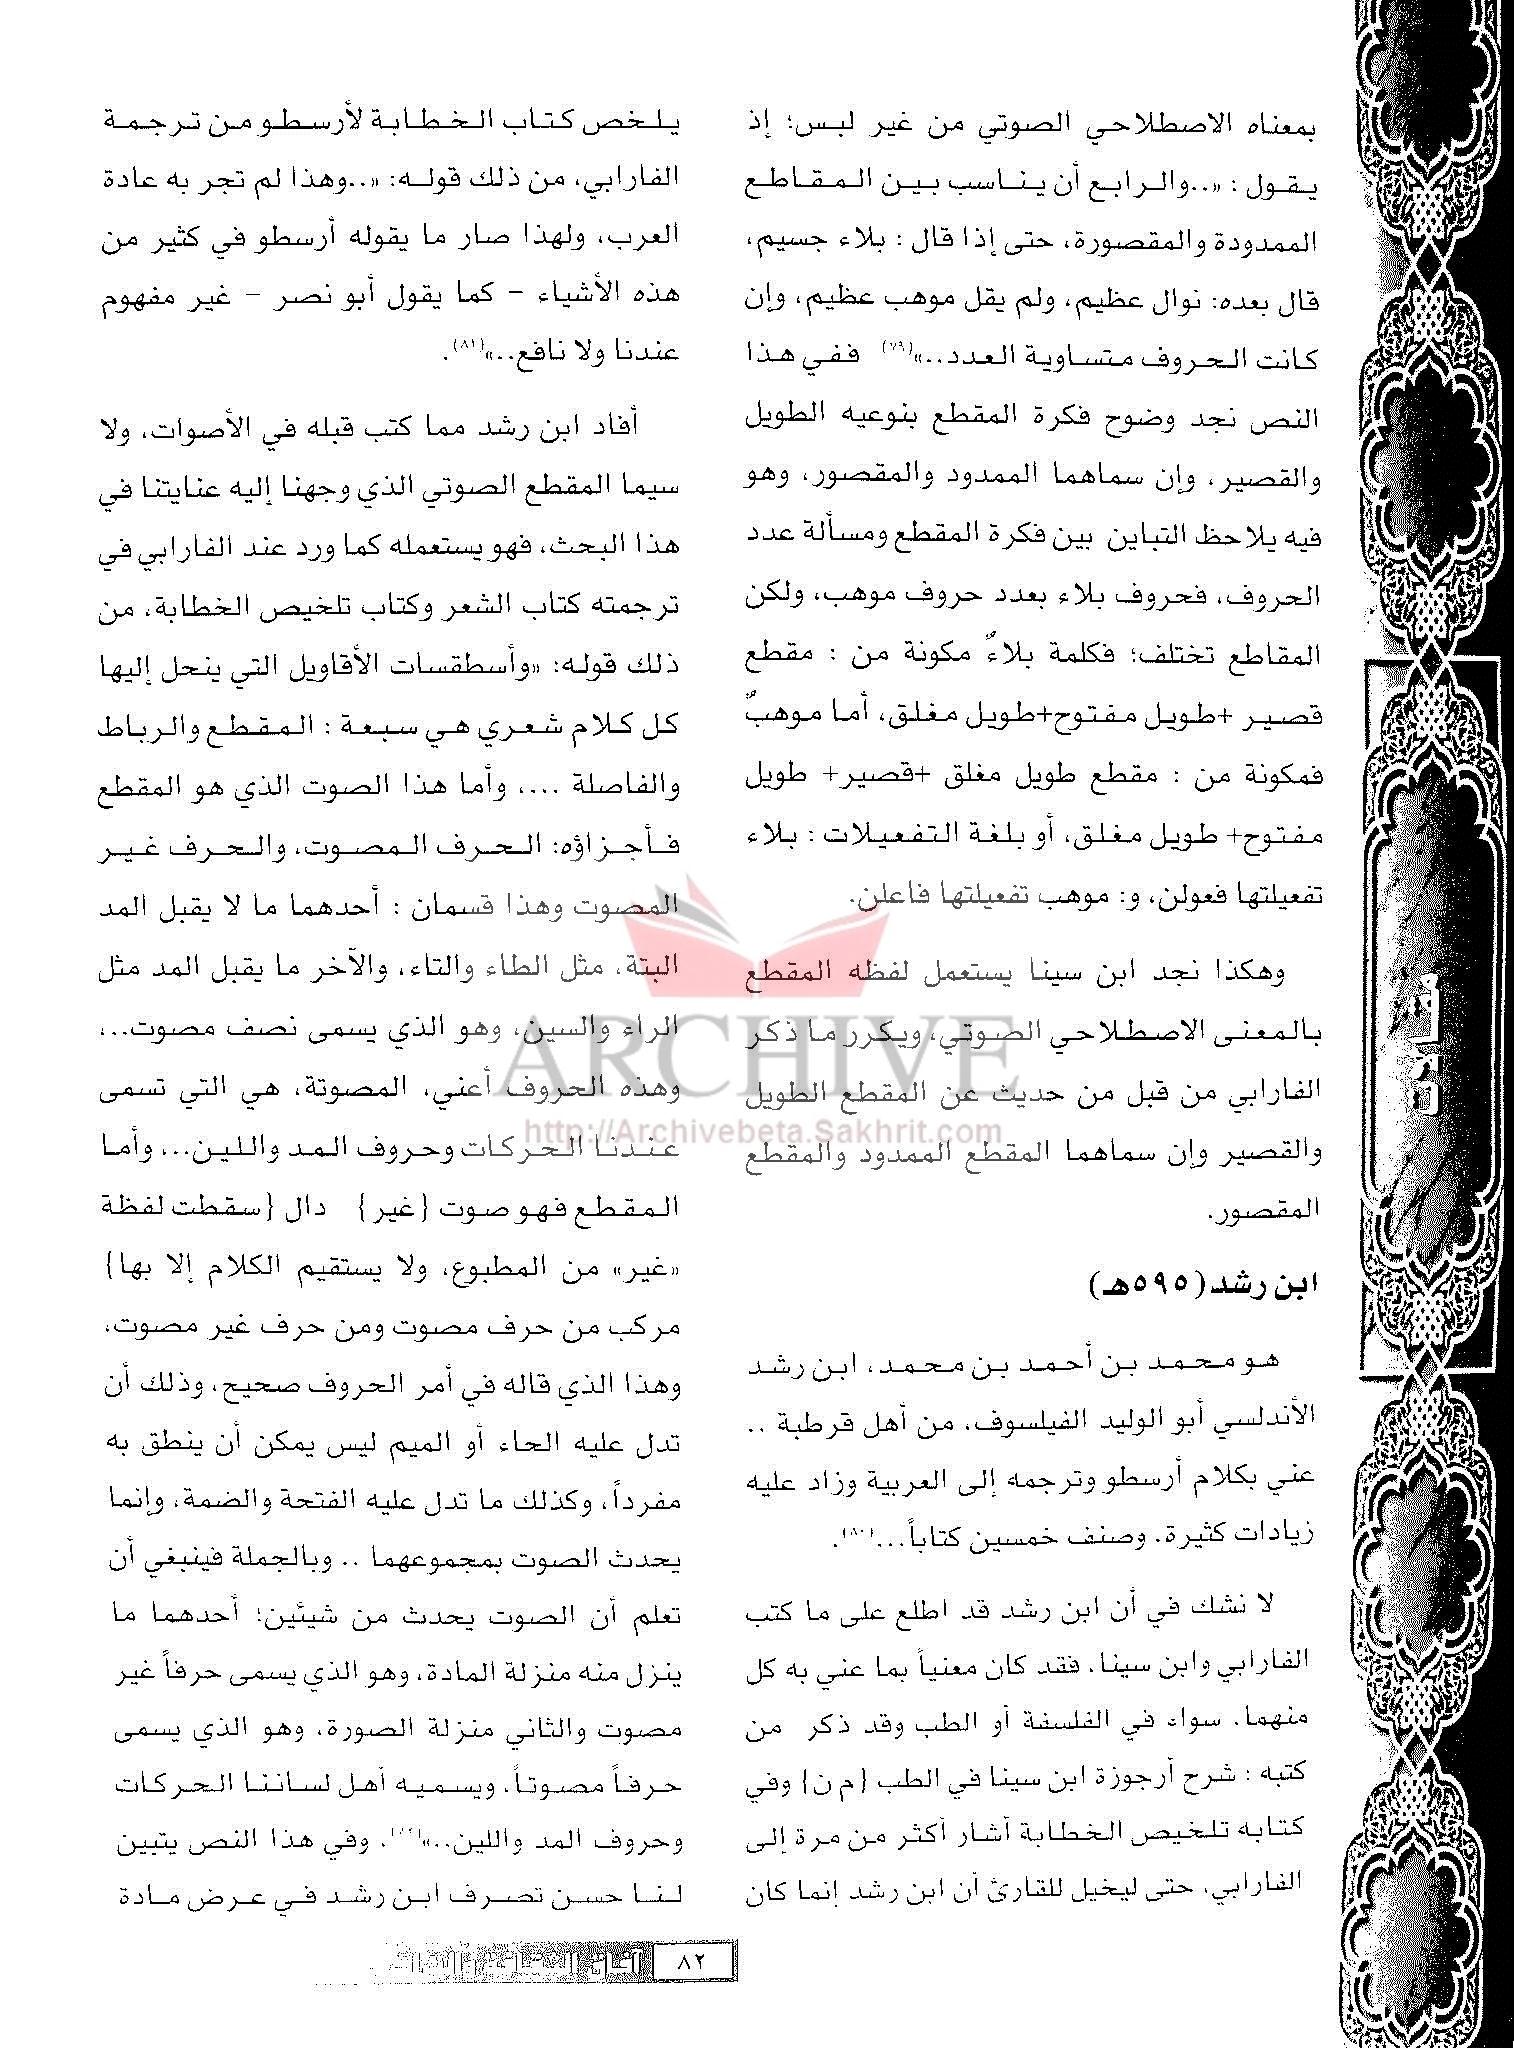 بمعناه الاصطلاحي الصوتي من غير لبس؛ إذ
يقول : «..والرابع أن يناسب بين المقاطع
الممدودة والمقصورة، حتى إذا قال : بلاء جسيم،
قال بعده: نوال عظيم، ولم يقل موهب عظيم، وإن
كانت الحروف متساوية العدد..»(٧٩) ففي هذا
النص نجد وضوح فكرة المقطع بنوعيه الطويل
والقصير، وإن سماهما الممدود والمقصور، وهو
فيه يلاحظ التباين بين فكرة المقطع ومسألة عدد
الحروف، فحروف بلاء بعدد حروف موهب، ولكن
المقاطع تختلف؛ فكلمة بلاءٌ مكونة من : مقطع
قصير +طويل مفتوح+طويل مغلق، أما موهبٌ
فمكونة من : مقطع طويل مغلق +قصير+ طويل
مفتوح+ طويل مغلق، أو بلغة التفعيلات : بلاء
تفعيلتها فعولن، و: موهب تفعيلتها فاعلن.
وهكذا نجد ابن سينا يستعمل لفظه المقطع
بالمعنى الاصطلاحي الصوتي، ويكرر ما ذكر
الفارابي من قبل من حديث عن المقطع الطويل
والقصير وإن سماهما المقطع الممدود والمقطع
المقصور.
ابن رشد (٥٩٥هـ)
هو محمد بن أحمد بن محمد، ابن رشد
الأندلسي أبو الوليد الفيلسوف، من أهل قرطبة ..
عني بكلام أرسطو وترجمه إلى العربية وزاد عليه
زيادات كثيرة. وصنف خمسين كتاباً...(٨٠).
لا نشك في أن ابن رشد قد اطلع على ما كتب
الفارابي وابن سينا، فقد كان معنياً بما عني به كل
منهما، سواء في الفلسفة أو الطب وقد ذكر من
كتبه : شرح أرجوزة ابن سينا في الطب {م ن} وفي
كتابه تلخيص الخطابة أشار أكثر من مرة إلى
الفارابي، حتى ليخيل للقارئ أن ابن رشد إنما كان
يلخص كتاب الخطابة لأرسطو من ترجمة
الفارابي، من ذلك قوله: «..وهذا لم تجر به عادة
العرب، ولهذا صار ما يقوله أرسطو في كثير من
هذه الأشياء - كما يقول أبو نصر - غير مفهوم
عندنا ولا نافع..»(٨١).
أفاد ابن رشد مما كتب قبله في الأصوات، ولا
سيما المقطع الصوتي الذي وجهنا إليه عنايتنا في
هذا البحث، فهو يستعمله كما ورد عند الفارابي في
ترجمته كتاب الشعر وكتاب تلخيص الخطابة، من
ذلك قوله: «وأسطقسات الأقاويل التي ينحل إليها
كل كلام شعري هي سبعة : المقطع والرباط
والفاصلة ....، وأما هذا الصوت الذي هو المقطع
فأجزاؤه: الحرف المصوت، والحرف غير
المصوت وهذا قسمان : أحدهما ما لا يقبل المد
البتة، مثل الطاء والتاء، والآخر ما يقبل المد مثل
الراء والسين، وهو الذي يسمى نصف مصوت...،
وهذه الحروف أعني، المصوتة، هي التي تسمى
عندنا الحركات وحروف المد واللين... وأما
المقطع فهو صوت {غير} دال {سقطت لفظة
«غير» من المطبوع، ولا يستقيم الكلام إلا بها}
مركب من حرف مصوت ومن حرف غير مصوت،
وهذا الذي قاله في أمر الحروف صحيح، وذلك أن
تدل عليه الحاء أو الميم ليس يمكن أن ينطق به
مفرداً، وكذلك ما تدل عليه الفتحة والضمة، وإنما
يحدث الصوت بمجموعهما .. وبالجملة فينبغي أن
تعلم أن الصوت يحدث من شيئين؛ أحدهما ما
ينزل منه منزلة المادة، وهو الذي يسمى حرفاً غير
مصوت والثاني منزلة الصورة، وهو الذي يسمى
حرفاً مصوتاً، ويسميه أهل لساننا الحركات
وحروف المد واللين..»(٨٢). وفي هذا النص يتبين
لنا حسن تصرف ابن رشد في عرض مادة
مقالات
ARCHIVE
http://Archivebeta.Sakhrit.com
٨٢
آفاق الثقافة والتراث